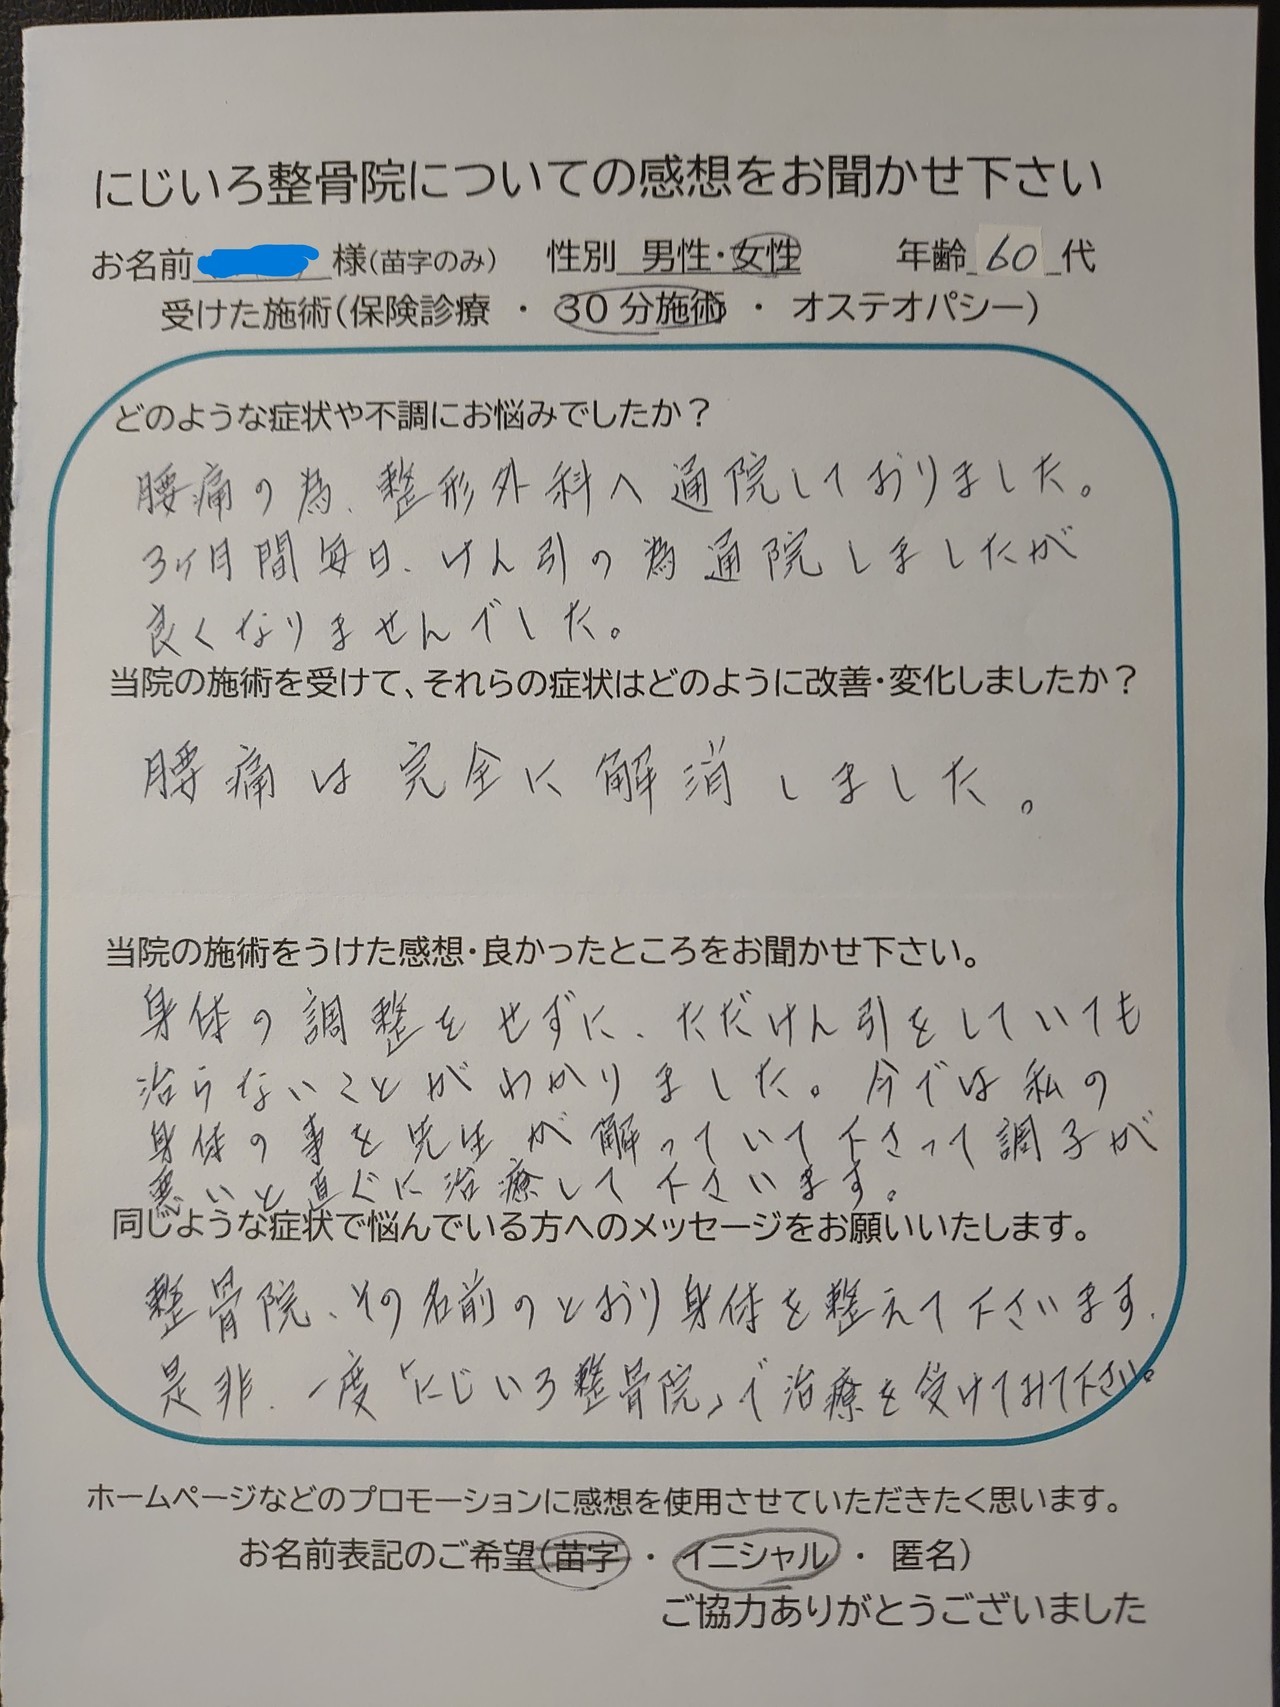 にじいろ整骨院についての感想をお聞かせ下さい
お名前 様(苗字のみ) 性別 男性・女性 年齢 60 代
受けた施術(保険診療 ・ 30分施術 ・ オステオパシー)
どのような症状や不調にお悩みでしたか?
腰痛の為、整形外科へ通院しておりました。
3ヶ月間毎日、けん引の為通院しましたが
良くなりませんでした。
当院の施術を受けて、それらの症状はどのように改善・変化しましたか?
腰痛は完全に解消しました。
当院の施術をうけた感想・良かったところをお聞かせ下さい。
身体の調整をせずに、ただけん引をしていても
治らないことがわかりました。今では私の
身体の事を先生が解っていて下さって調子が
悪いと直ぐに治療して下さいます。
同じような症状で悩んでいる方へのメッセージをお願いいたします。
整骨院、その名前のとおり身体を整えて下さいます.
是非、一度「にじいろ整骨院」で治療を受けてみて下さい。
ホームページなどのプロモーションに感想を使用させていただきたく思います。
お名前表記のご希望(苗字 ・ イニシャル ・ 匿名)
ご協力ありがとうございました